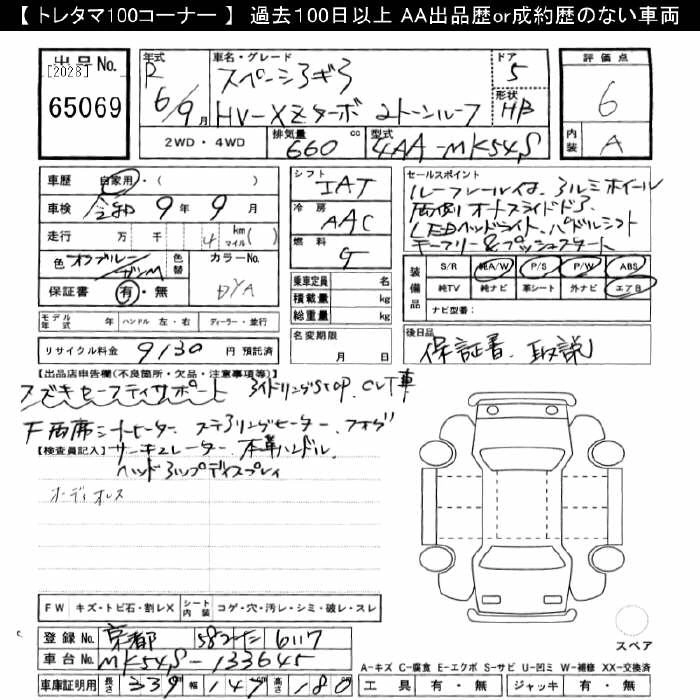 【 トレタマ100コーナー 】 過去100日以上 AA出品歴or成約歴のない車両
出品No. [2028] 65069
年式 R 6/9月
車名・グレード スペーシアギア
HV-XZターボ 2トーンルーフ
ドア 5
形状 HB
評価点 6
内装 A
2WD・4WD 排気量 660 cc 型式 4AA-MK54S
車歴 自家用・( )
車検 令和 9年 9月
走行 万 千 4 km マイル( )
色 オフブルー ガンM 色替 カラーNo. DYA
保証書 有・無
モデル年式 年 ハンドル 左・右 ディーラー・並行
リサイクル料金 9130 円 預託済
シフト IAT
冷房 AAC
燃料 G
乗車定員 名
積載量 kg
総重量 kg
名変期限 月 日
セールスポイント
ルーフレール付、アルミホイール
両側オートスライドドア、
LEDヘッドライト、パドルシフト
キーフリー&プッシュスタート
装備品 S/R 純A/W P/S P/W ABS
純TV 純ナビ 革シート 外ナビ エアB
ナビ型番:
後日品 保証書、取説
【出品店申告欄(不良箇所・欠品・注意事項等)】
スズキセーフティサポート アイドリングSTOP、CVT車
F両席シートヒーター、ステアリングヒーター、フォグ
【検査員記入】 サーキュレーター、本革ハンドル、
ヘッドアップディスプレイ
オーディオレス
FW キズ・トビ石・割レX シート内装 コゲ・穴・汚レ・シミ・破レ・スレ
登録No. 京都 582 た 6117
車台No. MK54S-133645
車庫証明用 長さ 339 幅 147 高さ 180
スペア
A-キズ C-腐食 E-エクボ S-サビ U-凹ミ W-補修 XX-交換済
工具 有・無 ジャッキ 有・無